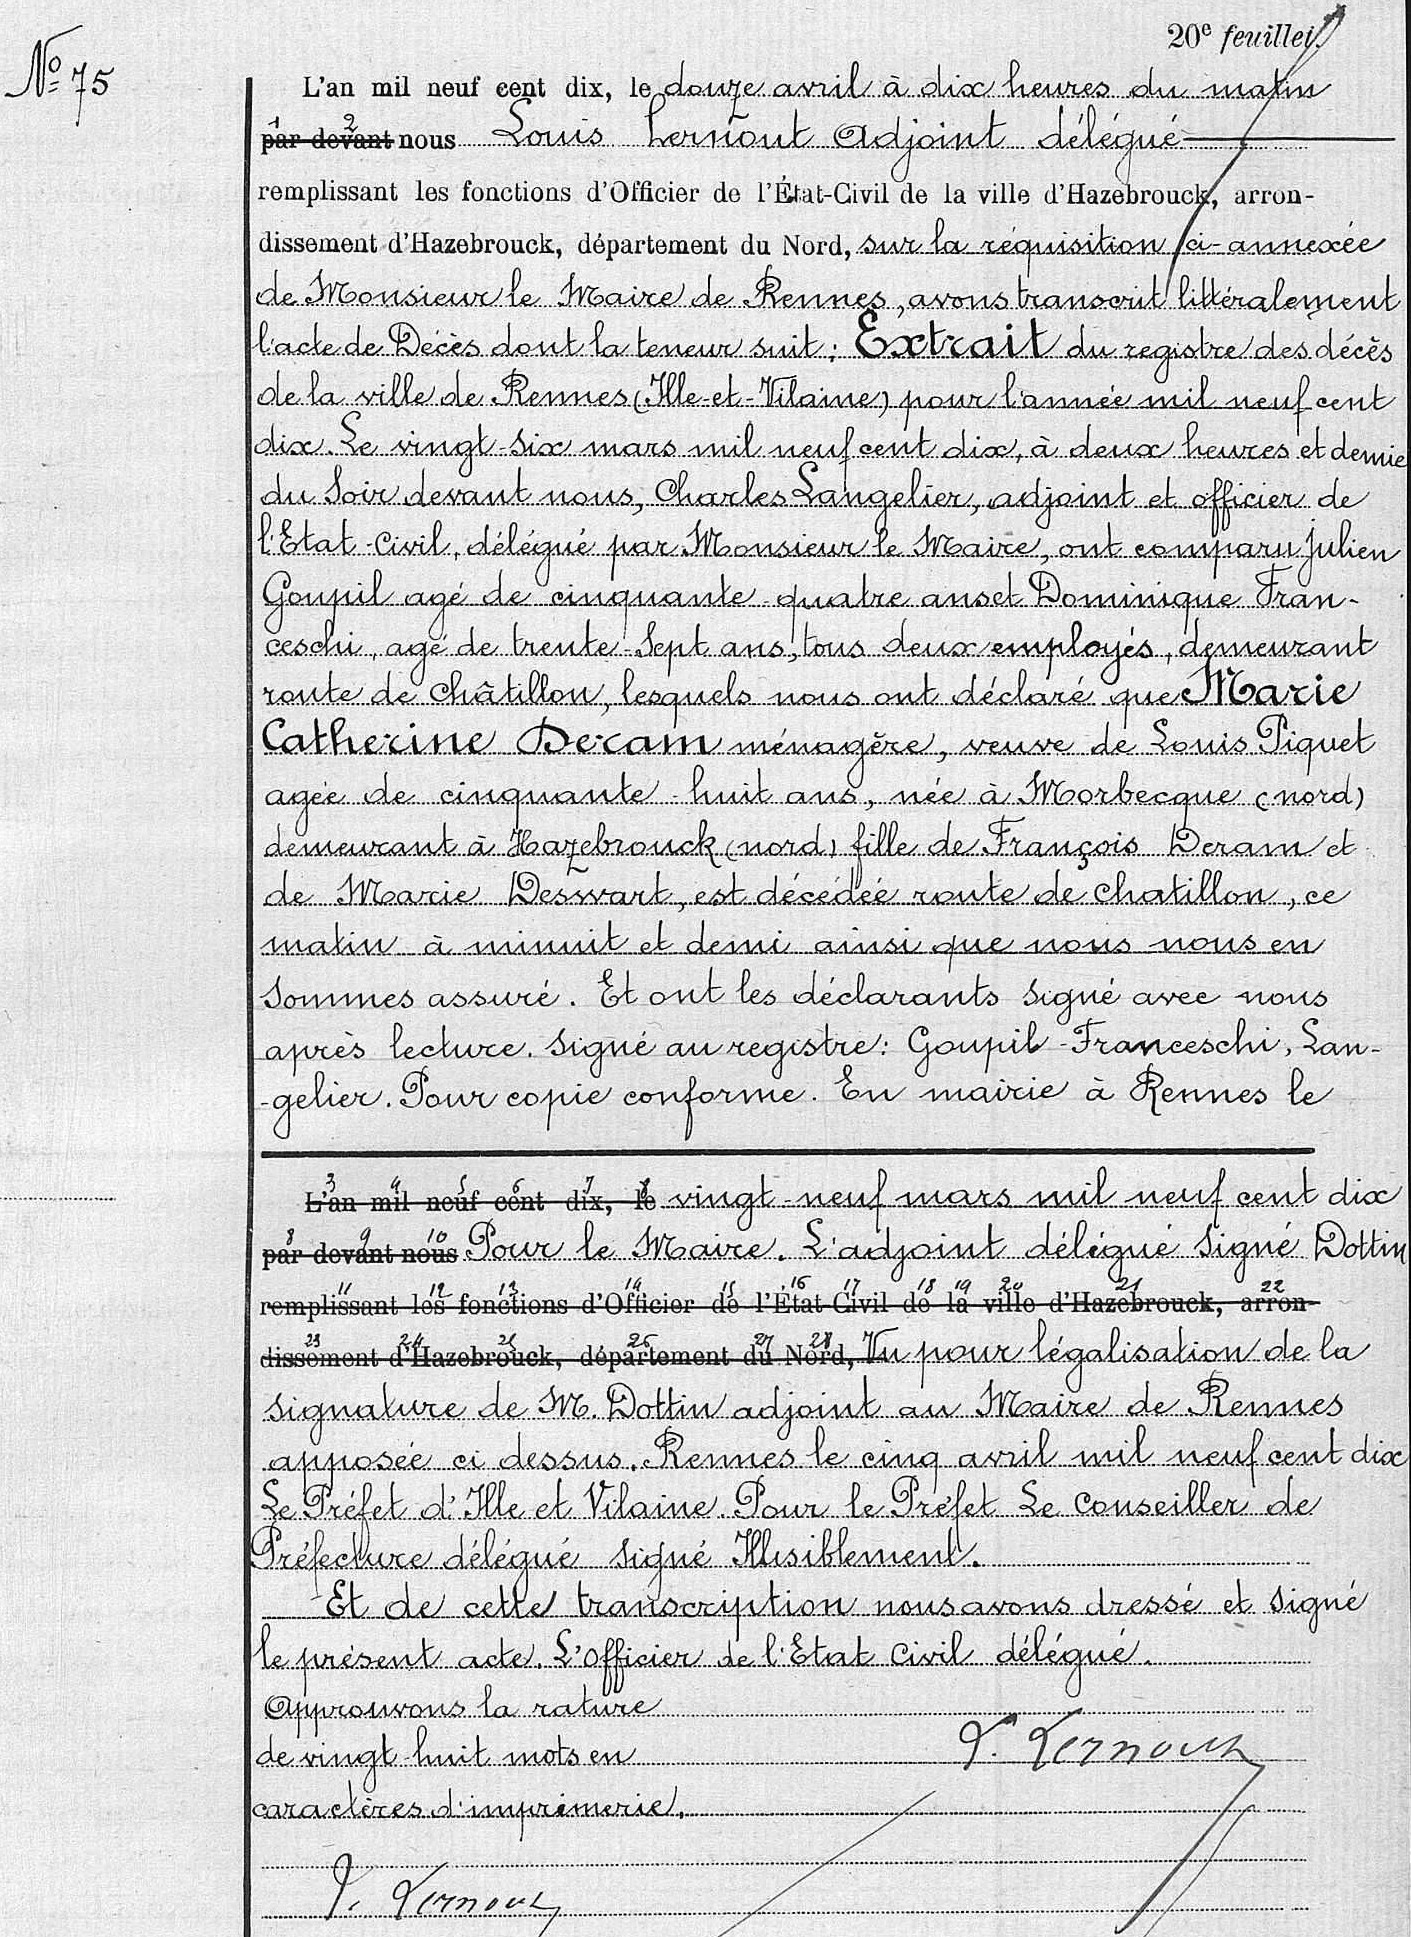 20e feuillet.
No 75
L'an mil neuf cent dix, le douze avril à dix heures du matin
par devant nous Louis Lernout Adjoint délégué
remplissant les fonctions d'Officier de l'État-Civil de la ville d'Hazebrouck, arron-
dissement d'Hazebrouck, département du Nord, sur la réquisition ci-annexée
de Monsieur le Maire de Rennes, avons transcrit littéralement
l'acte de Décès dont la teneur suit : Extrait du registre des décès
de la ville de Rennes (Ille-et-Vilaine) pour l'année mil neuf cent
dix. Le vingt-six mars mil neuf cent dix, à deux heures et demie
du soir devant nous, Charles Langelier, adjoint et officier de
l'Etat-Civil, délégué par Monsieur le Maire, ont comparu Julien
Goupil agé de cinquante-quatre ans et Dominique Fran-
ceschi, agé de trente-sept ans, tous deux employés, demeurant
route de châtillon, lesquels nous ont déclaré que Marie
Catherine Deram ménagère, veuve de Louis Piquet
agée de cinquante-huit ans, née à Morbecque (nord)
demeurant à Hazebrouck (nord) fille de François Deram et
de Marie Deswart, est décédée route de chatillon, ce
matin à minuit et demi ainsi que nous nous en
sommes assuré. Et ont les déclarants signé avec nous
après lecture. signé au registre : Goupil - Franceschi, Lan-
-gelier. Pour copie conforme. En mairie à Rennes le
L'an mil neuf cent dix, le vingt-neuf mars mil neuf cent dix
par devant nous Pour le Maire. L'adjoint délégué signé Dottin
remplissant les fonctions d'Officier de l'État-Civil de la ville d'Hazebrouck, arron-
dissement d'Hazebrouck, département du Nord, Vu pour légalisation de la
signature de M. Dottin adjoint au Maire de Rennes
apposée ci dessus. Rennes le cinq avril mil neuf cent dix
Le Préfet d'Ille et Vilaine. Pour le Préfet Le conseiller de
Préfecture délégué signé Illisiblement.
Et de cette transcription nous avons dressé et signé
le présent acte. L'officier de l'Etat civil délégué.
Approuvons la rature
de vingt-huit mots en
caractères d'imprimerie.
L. Lernout
L. Lernout